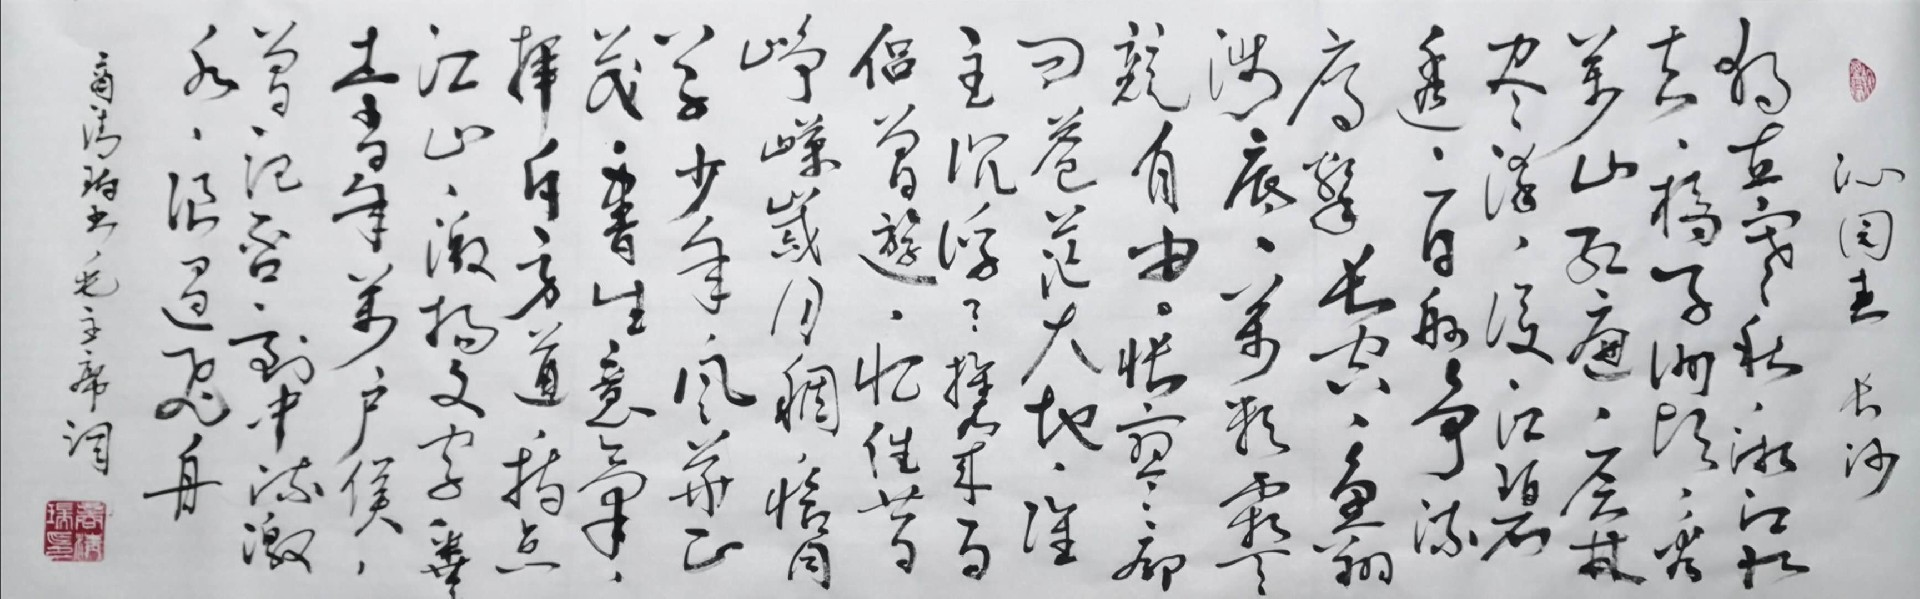 沁园春 长沙
独立寒秋、湘江北
去、橘子洲头、看
萬山红遍、层林
尽染、漫江碧
透、百舸争流
鹰擊长空、鱼翔
浅底、萬类霜天
竞自由。怅寥廓
问苍茫大地、谁
主沉浮、携来百
侣曾遊、忆往昔
峥嵘岁月稠、恰同
学少年、风华正
茂、書生意氣、
挥斥方遒、指点
江山、激扬文字、粪
土当年萬户侯、
曾记否、到中流激
水、浪遏飞舟
商清瑞书毛主席词
商清瑞印